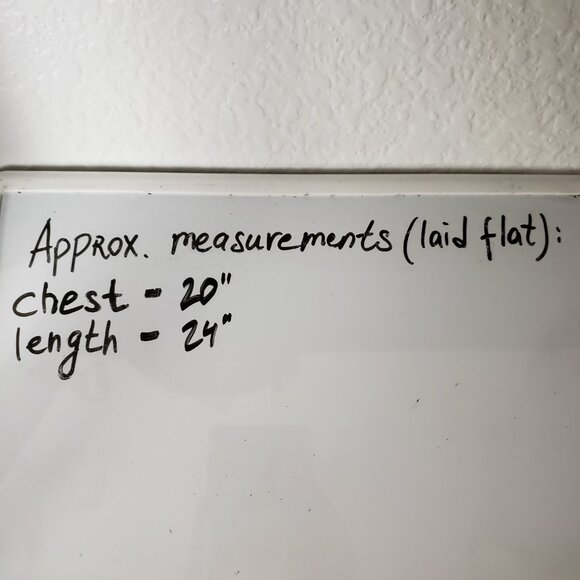 Approx. measurements (laid flat):
chest - 20"
length - 24"